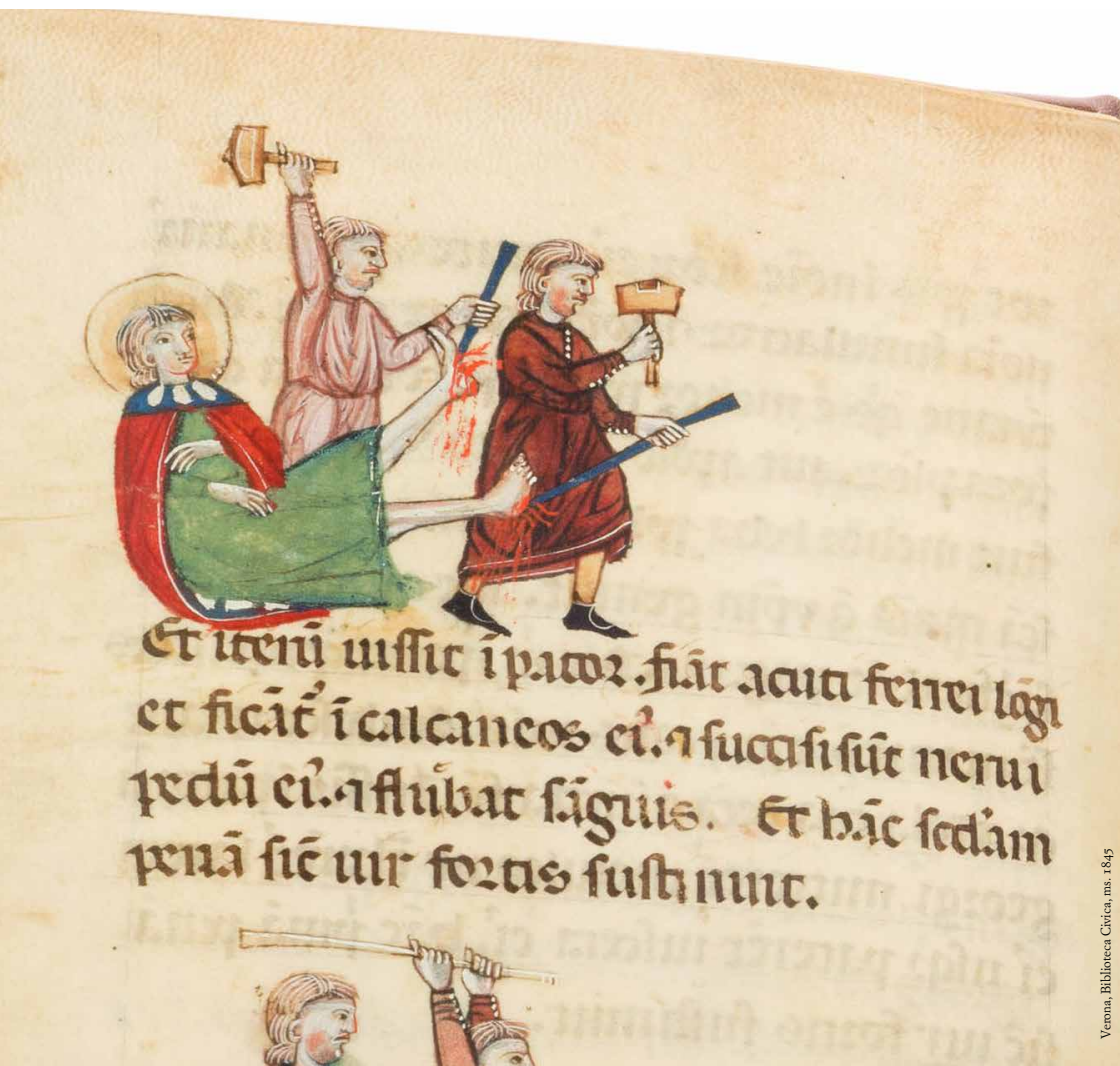 Et iterū iussit īpator. fiāt acuti ferrei lōgi
et ficāt᷒ ī calcaneos ei᷒. ⁊ succisi sūt nerui
pedū ei᷒. ⁊ fluebat sāguis. Et hāc scd᷒am
penā sic̄ uir fortis sustinuit.
Verona, Biblioteca Civica, ms. 1845